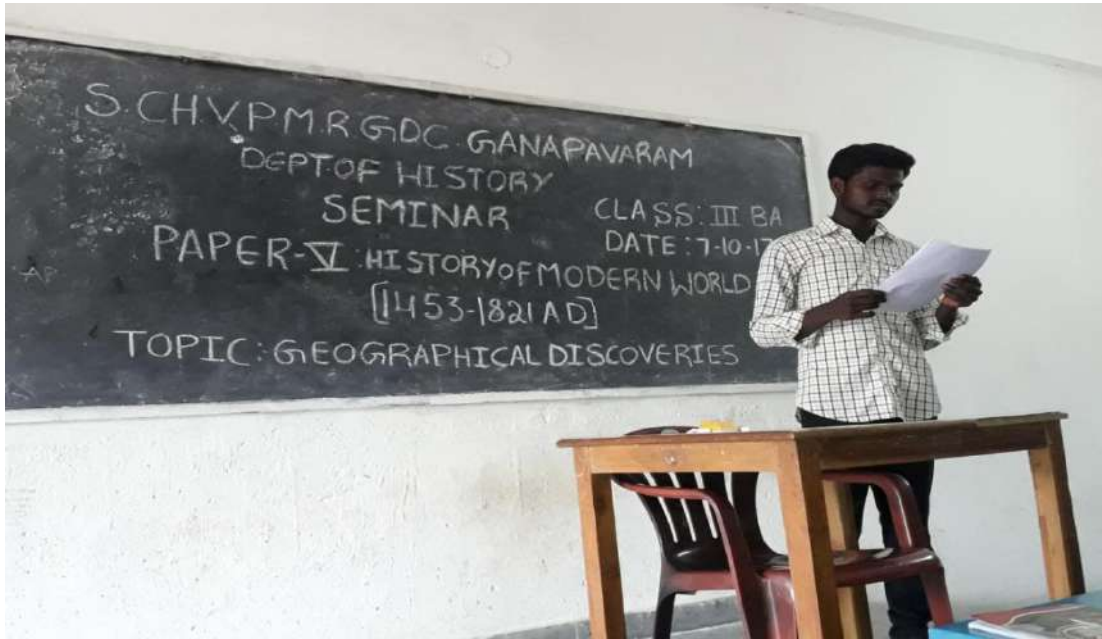 S.CH.V.P.M.R GDC. GANAPAVARAM
DEPT OF HISTORY
SEMINAR
CLASS: III BA
DATE: 7-10-17
PAPER-V: HISTORY OF MODERN WORLD
[1453-1821 AD]
TOPIC: GEOGRAPHICAL DISCOVERIES
AP